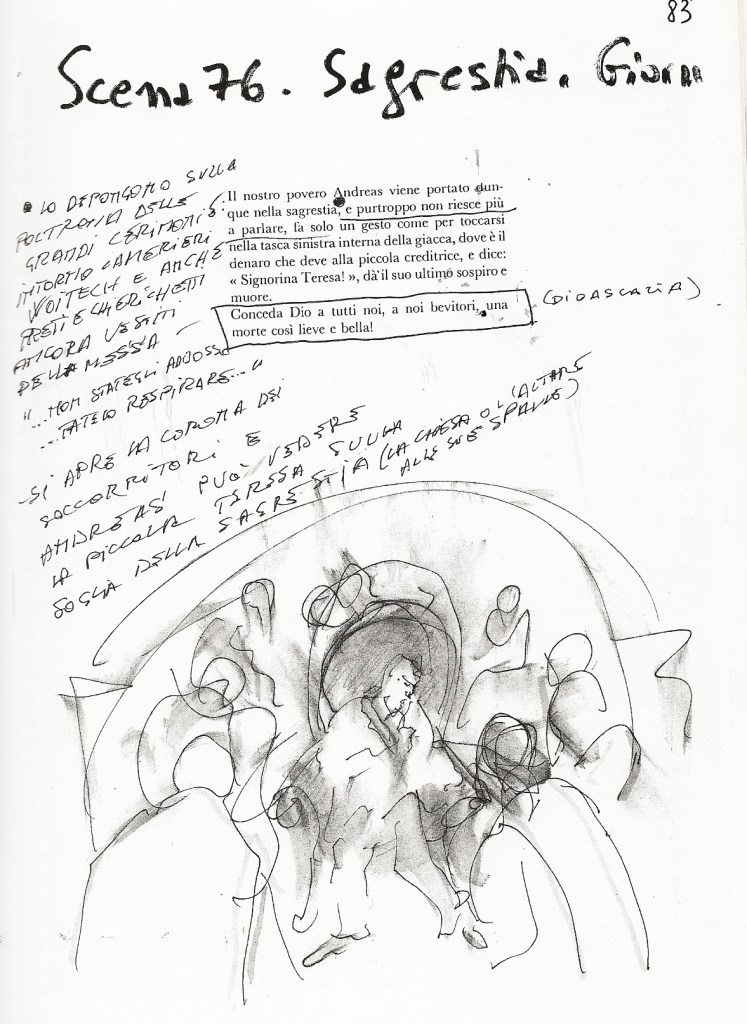 83
Scena 76. Sagrestia. Giorno
LO DEPONGONO SULLA
POLTRONA DELLE
GRANDI CERIMONIE:
INTORNO CAMERIERI
WOITECH E ANCHE
PRETI E CHIERICHETTI
ANCORA VESTITI
DELLA MESSA —
"...NON STATEGLI ADDOSSO
...FATELO RESPIRARE..."
Il nostro povero Andreas viene portato dun-
que nella sagrestia, e purtroppo non riesce più
a parlare, fa solo un gesto come per toccarsi
nella tasca sinistra interna della giacca, dove è il
denaro che deve alla piccola creditrice, e dice:
« Signorina Teresa! », dà il suo ultimo sospiro e
muore.
Conceda Dio a tutti noi, a noi bevitori, una
morte così lieve e bella!
(DIDASCALIA)
-SI APRE LA CORONA DEI
SOCCORRITORI E
ANDREAS PUÒ VEDERE
LA PICCOLA TERESA SULLA
SOGLIA DELLA SAGRESTIA (LA CHIESA O L'ALTARE
ALLE SUE SPALLE)